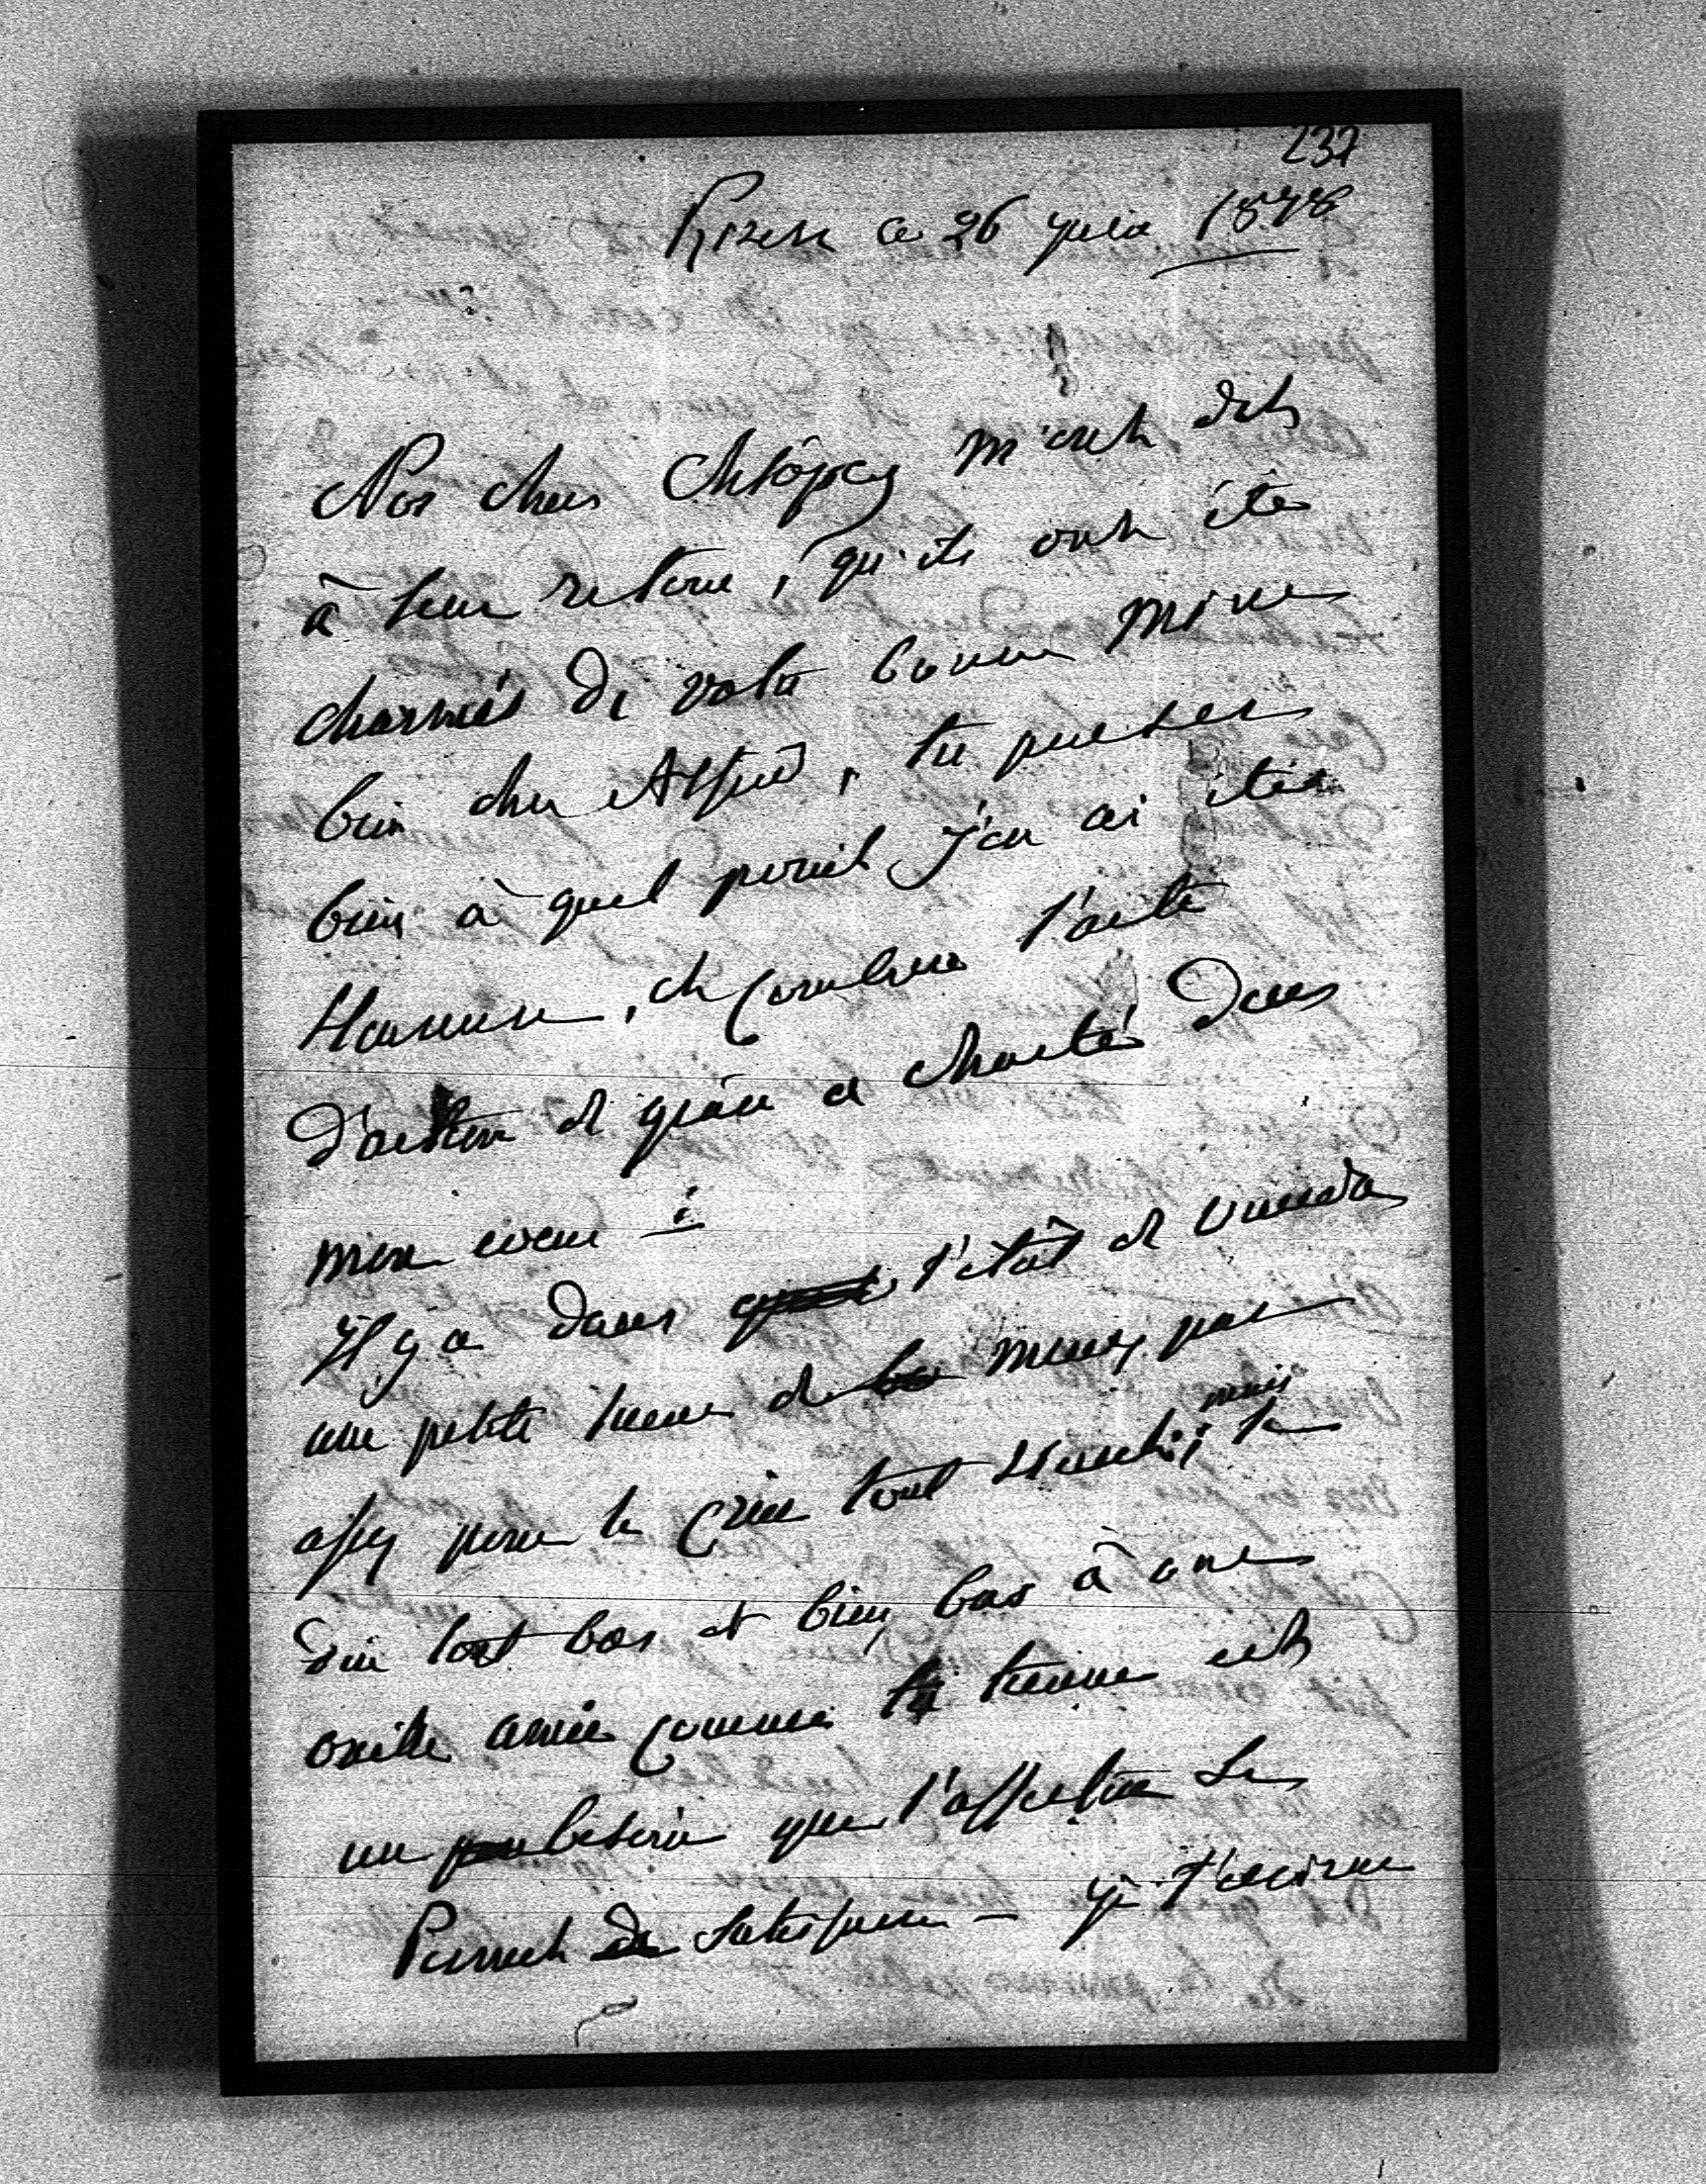 237
ce 26 juin 1878
Nos chers Chłopcy m'ont dit
à leur retour, qu'ils ont été
charmés de votre bonne mine
bien cher Alfred, tu penses
bien à quel point j'en ai été
heureuse, et combien l'acte
d'action de grâce a chanté dans
mon cœur
Il y a dans l'état de
une petite lueur de mieux, pas
assez pour le crier tout haut; mais le
dire tout bas et bien bas à une
oreille amie comme la tienne est
un besoin que l'affection se
permet de satisfaire –